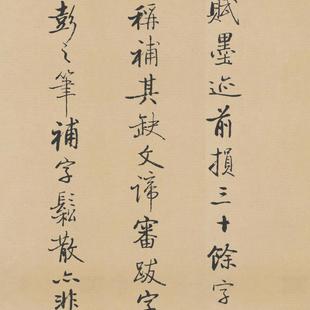 賦墨迹前損三十餘字
稱補其缺文諦審跋字
彭之筆補字鬆散亦非